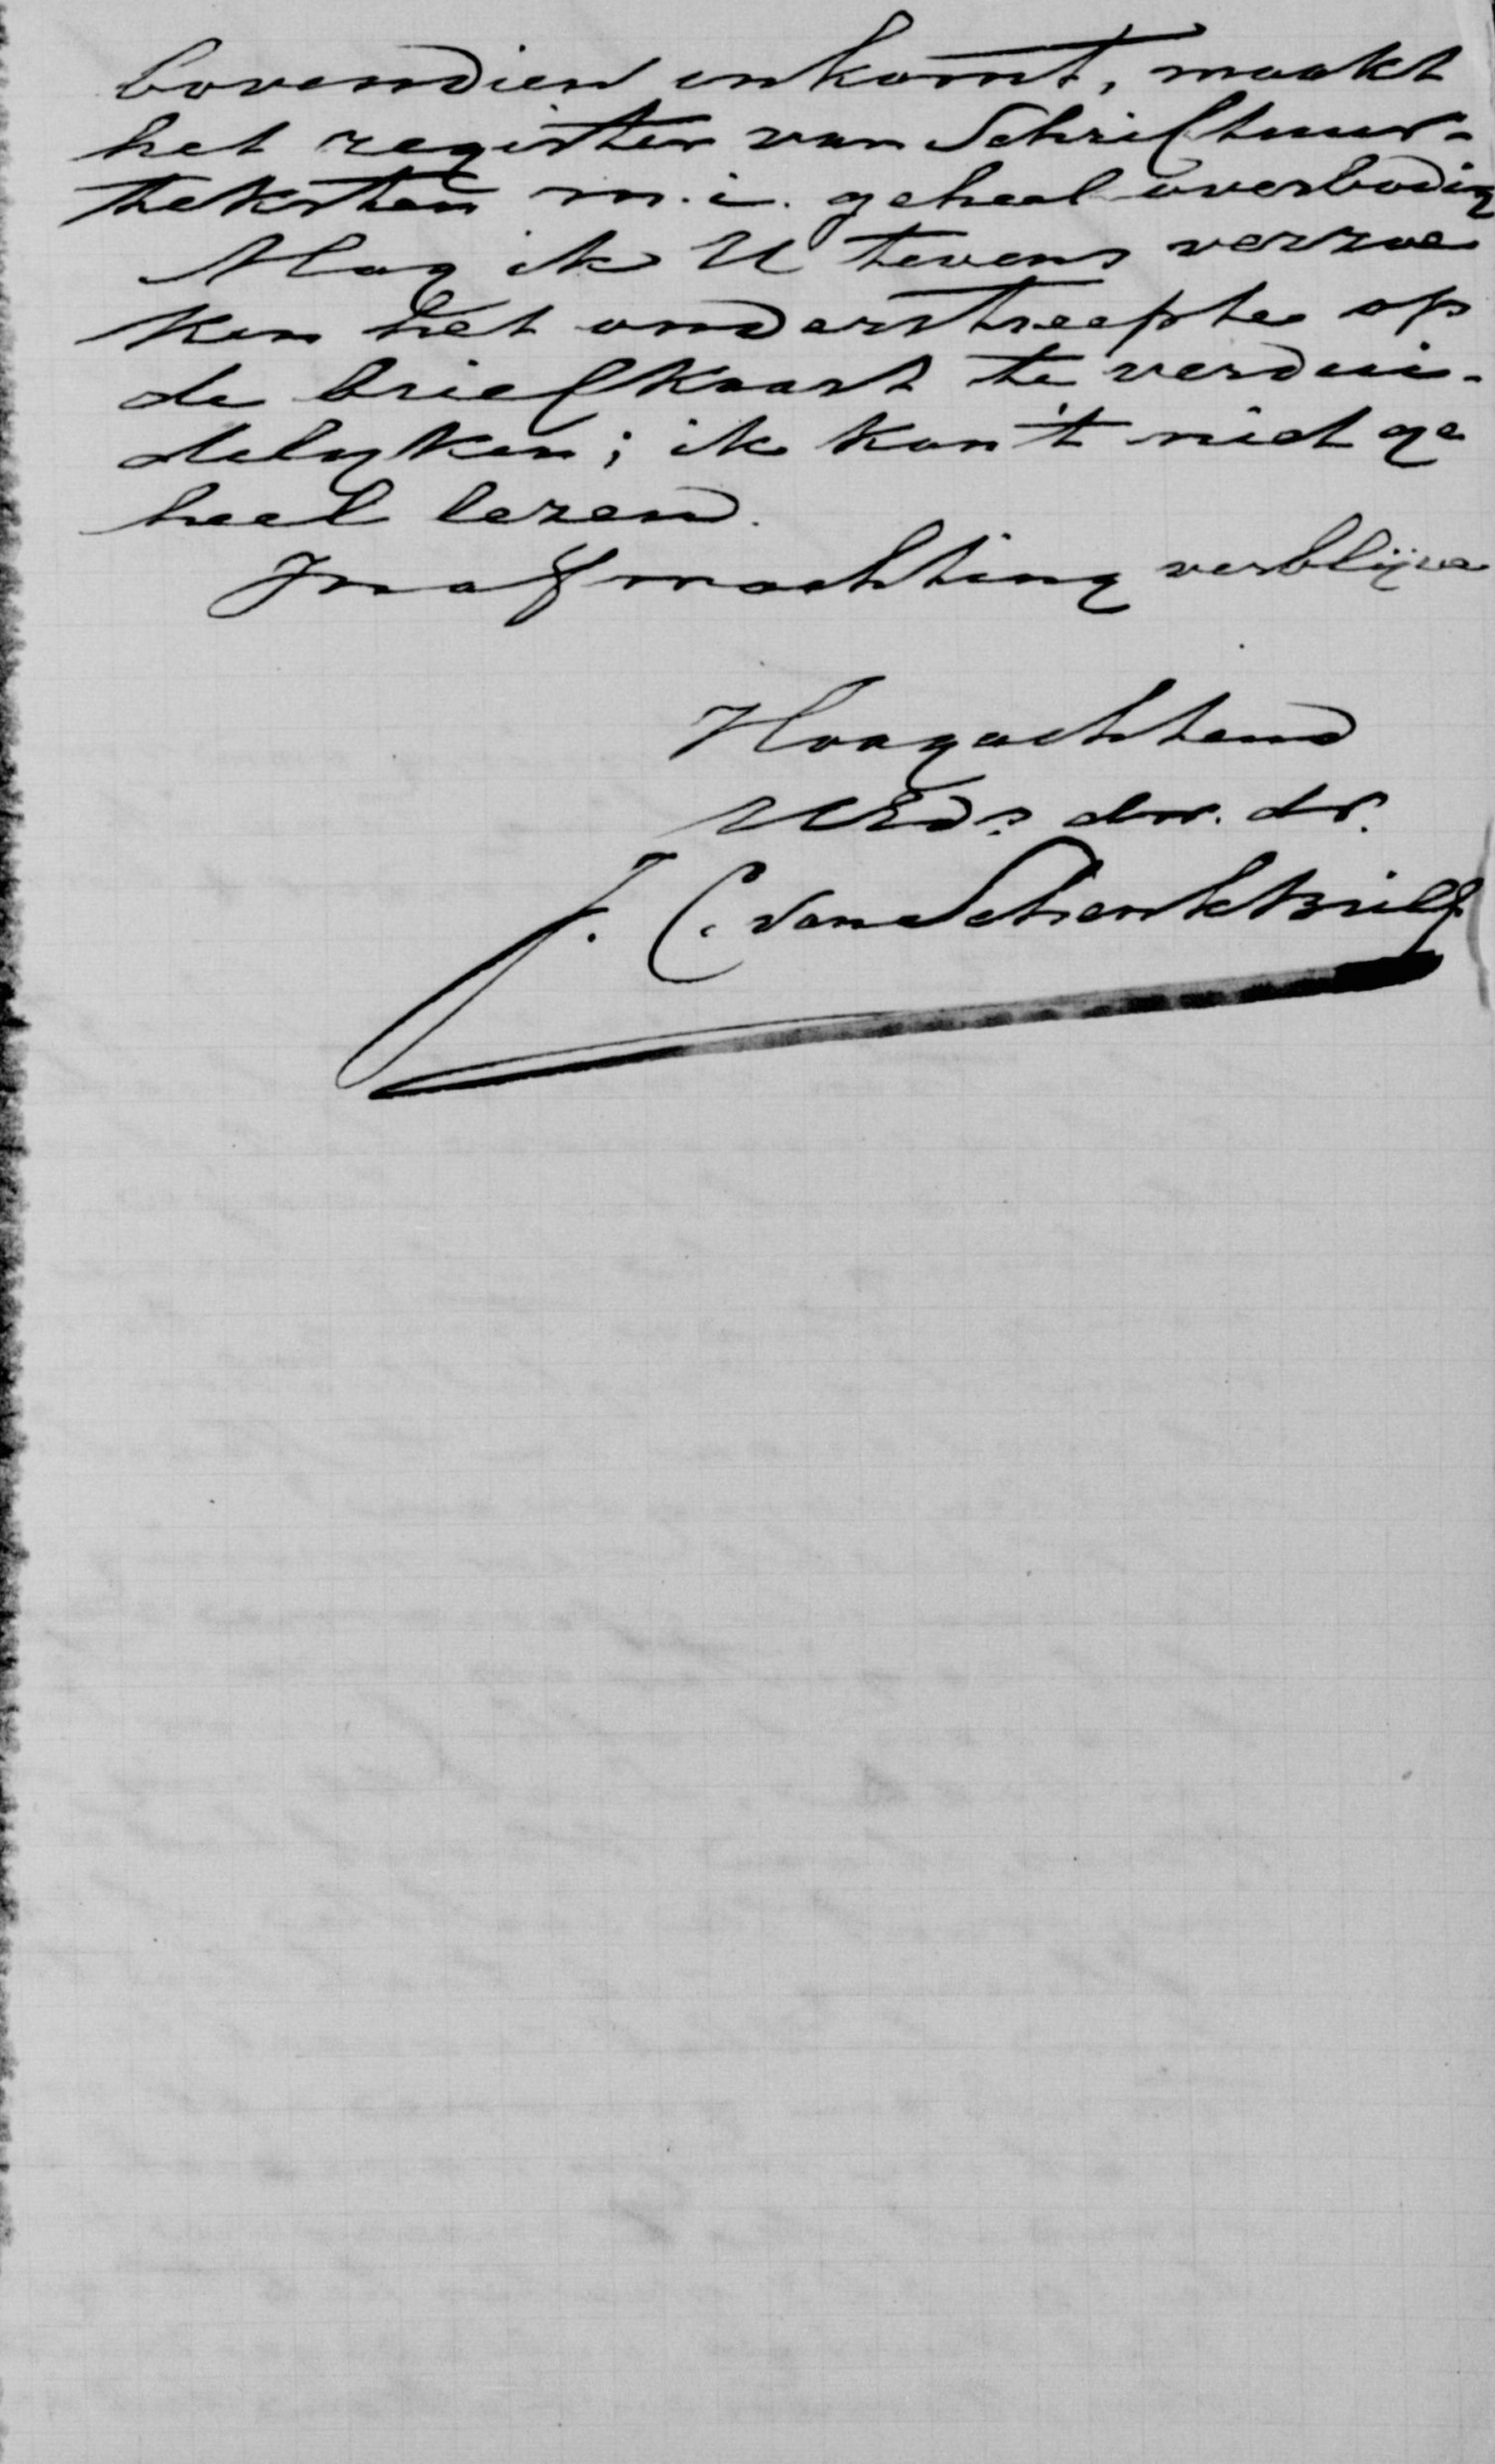 bovendien inkomt, maakt
het register van Schriftuur-
teksten m.i. geheel overbodig
Mag ik U tevens verzoe
ken het onderstreepte op
de briefkaart te verdui-
delyken; ik kan 't niet ge
heel lezen.
In afwachting verblijve
Hoogachtend
UEds. dw. dr.
J. C. van Schenk Brill